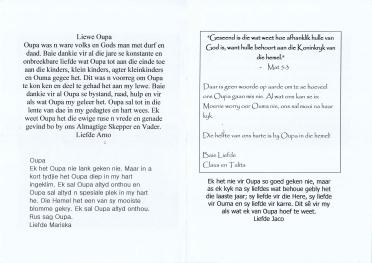 Liewe Oupa
Oupa was 'n ware volks en Gods man met durf en
daad. Baie dankie vir al die jare se konstante en
onbreekbare liefde wat Oupa tot aan die einde toe
aan die kinders, klein kinders, agter kleinkinders
en Ouma gegee het. Dit was n voorreg om Oupa
te kon ken en deel te gehad het aan my lewe. Baie
dankie vir al Oupa se bystand, raad, hulp en vir
als wat Oupa my geleer het. Oupa sal tot in die
lente van dae in my gedagtes en hart wees. Ek
weet Oupa het die ewige ruse n vrede en genade
gevind bo by ons Almagtige Skepper en Vader.
Liefde Arno
Oupa
Ek het Oupa nie lank geken nie. Maar in a
kort tydjie het Oupa diep in my hart
ingeklim. Ek sal Oupa altyd onthou en
Oupa sal altyd n spesiale plek in my hart
he. Die Hemel het een van sy mooiste
blomme gekry. Ek sal Oupa altyd onthou.
Rus sag Oupa.
Liefde Mariska
"Geseend is die wat weet hoe afhanklik hulle van
God is, want hulle behoort aan die Koninkryk van
die hemel."
- Mat 5:3
Daar is geen woorde op aarde om te se hoeveel
ons Oupa gaan mis nie. Al wat ons kan se is
Moenie worry oor Ouma nie, ons sal mooi na haar
kyk.
Die helfte van ons harte is by Oupa in die hemel!
Baie Liefde
Clasa en Talita
Ek het nie vir Oupa so goed geken nie, maar
as ek kyk na sy liefdes wat behoue gebly het
die laaste jaar; sy liefde vir die Here, sy liefde
vir Ouma en sy liefde vir karre. Dit sê vir my
als wat ek van Oupa hoef te weet.
Liefde Jaco